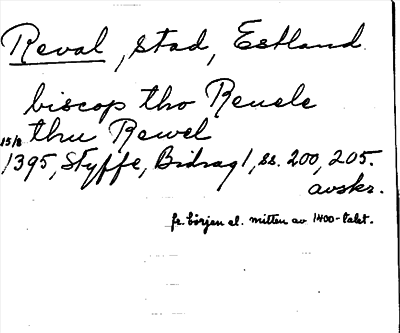 Reval, stad, Estland.
biscop tho Reuele
thu Rewel
15/8
1395, Styffe, Bidrag 1, ss. 200, 205.
avskr.
fr. börjen el. mitten av 1400-talet.